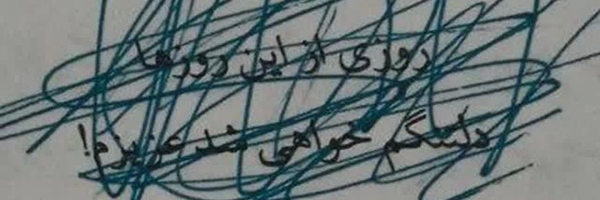 روزی از این روزها
دلتنگم خواهی شد عزیزم!